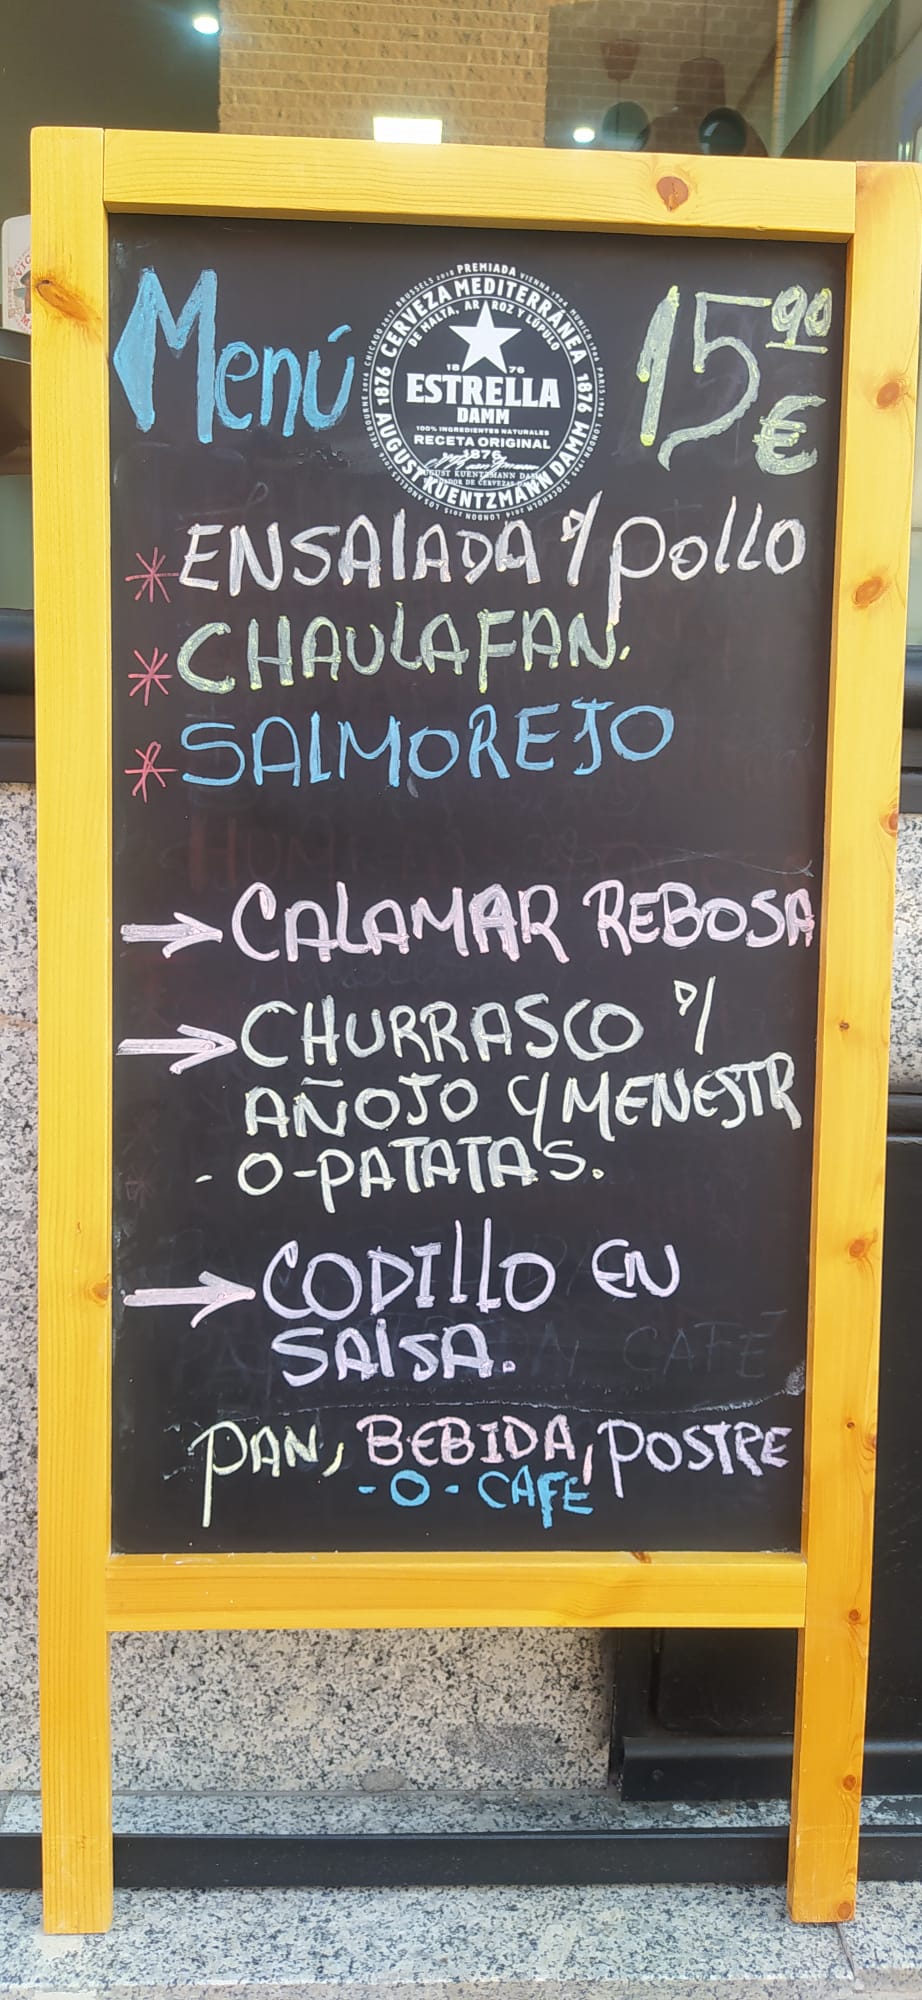 Menú
15 90 €
PREMIADA
CERVEZA MEDITERRÁNEA
DE MALTA, ARROZ Y LÚPULO
1876
1876
18 76
ESTRELLA
DAMM
100% INGREDIENTES NATURALES
RECETA ORIGINAL
1876
AUGUST KUENTZMANN DAMM
* ENSALADA d/ pollo
* CHAULAFAN.
* SALMOREJO
→ CALAMAR REBOSA
→ CHURRASCO d/
AÑOJO Y MENESTR
- O - PATATAS.
→ CODILLO EN
SALSA.
PAN, BEBIDA, POSTRE
- O - CAFE